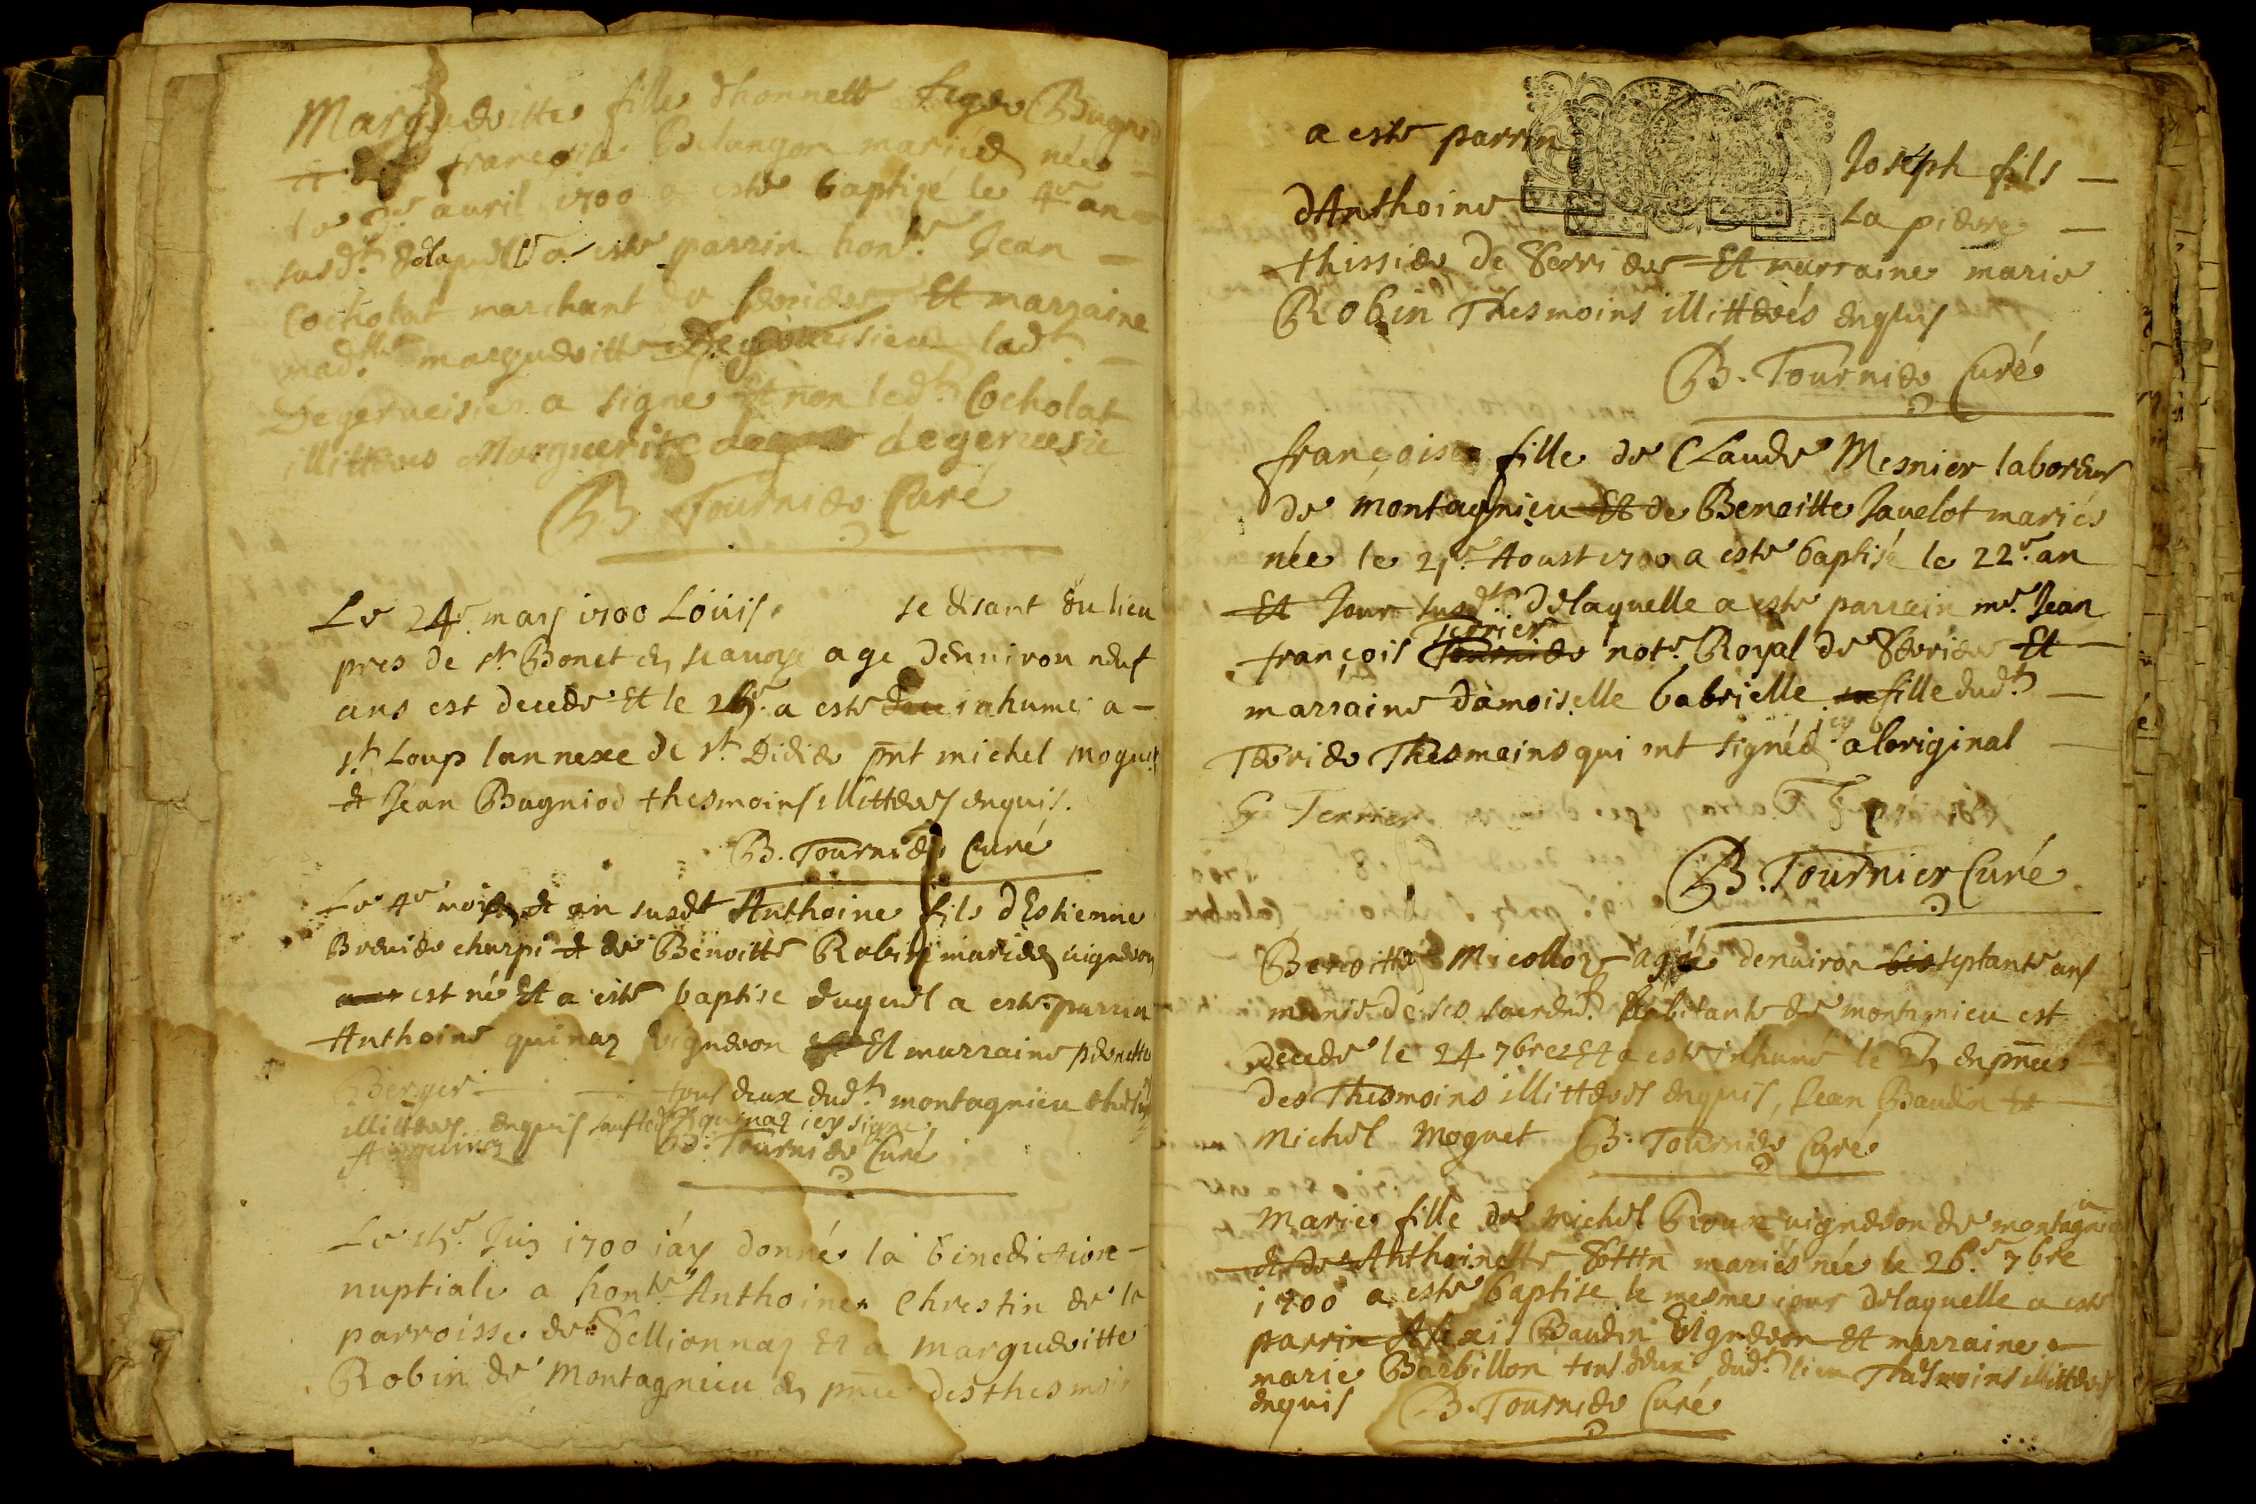 Margueritte fille d'honnette
francoise Belangon mariéé née
avril 1700 a este baptizé le 4e an
susdt a este parrin honte Jean
Cocholat marchant de Serrieres Et marraine
madlle margueritte ladt
Degerveisier a signe Et non ledt Cocholat
illitteres Marguerite degervesie
B Tournier Curé
Le 24e may 1700 Loüis se disant du lieu
pres de st Bonet en scavoye age denviron neuf
ans est decede Et le a este inhumé a
st Loup lannexe de st Didier pnt michel moguet
et Jean Bugniod thesmoins illitteres enquis.
B. Tournier Curé
Le 4e mois et an susdt Anthoine fils d'Estienne
charpi et de Benoitte Robin mariées vigneron
est né Et a este baptise duquel a este parrin
Anthoine quinaz vigneron Et marraine pernette
Berger tous deux dudt montagnieu
illitteres enquis sauf ledt quinaz icy signe
B. Tournier Curé
Le Juin 1700 iáy donné la benediction
nuptiale a honte Anthoine Chrestin de la
parroisse de Sellionnaz Et a margueritte
Robin de Montagnieu en pnce des thesmoi
a este parrin Joseph fils
d'Anthoine La pierre
thissier de Serrieres Et marraine marie
Robin Thesmoins illitterés enquis
B. Tournier Curé
françoise fille de Claude Mesnier laboreur
de montagnieu Et de Benoitte Javelot mariés
née le 21e Aoust 1700 a este baptisé le 22e an
Et Jour susdt delaquelle a este parrain me Jean
françois Terrier note Royal de Serrieres Et
marraine damoiselle Gabrielle fille dudt
Terrier Thesmoins qui ont signéé icy a loriginal
G Terrier
B. Tournier Curé
Benoitte Micolloz agéé denviron septante ans
munie de ses sacremts habitante de montagnieu est
decede le 24 7bre Et a este inhumé le en pnces
des Thesmoins illitteres enquis, Jean Baudin et
Michel Moguet B. Tournier Curé
Marie fille de michel Groux vigneron de montagnieu
et de Anthoinette mariés née le 26e 7bre
1700 a este baptise le mesme iour delaquelle a este
parrin Alexis Baudin vigneron Et marraine
marie Barbillon tous deux dudt lieu Thesmoins illitteres
enquis B. Tournier Curé